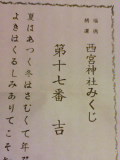 西宮神社みくじ
第十七番 吉
夏はあつく冬はさむくて年
よきはくるしみありてこそ